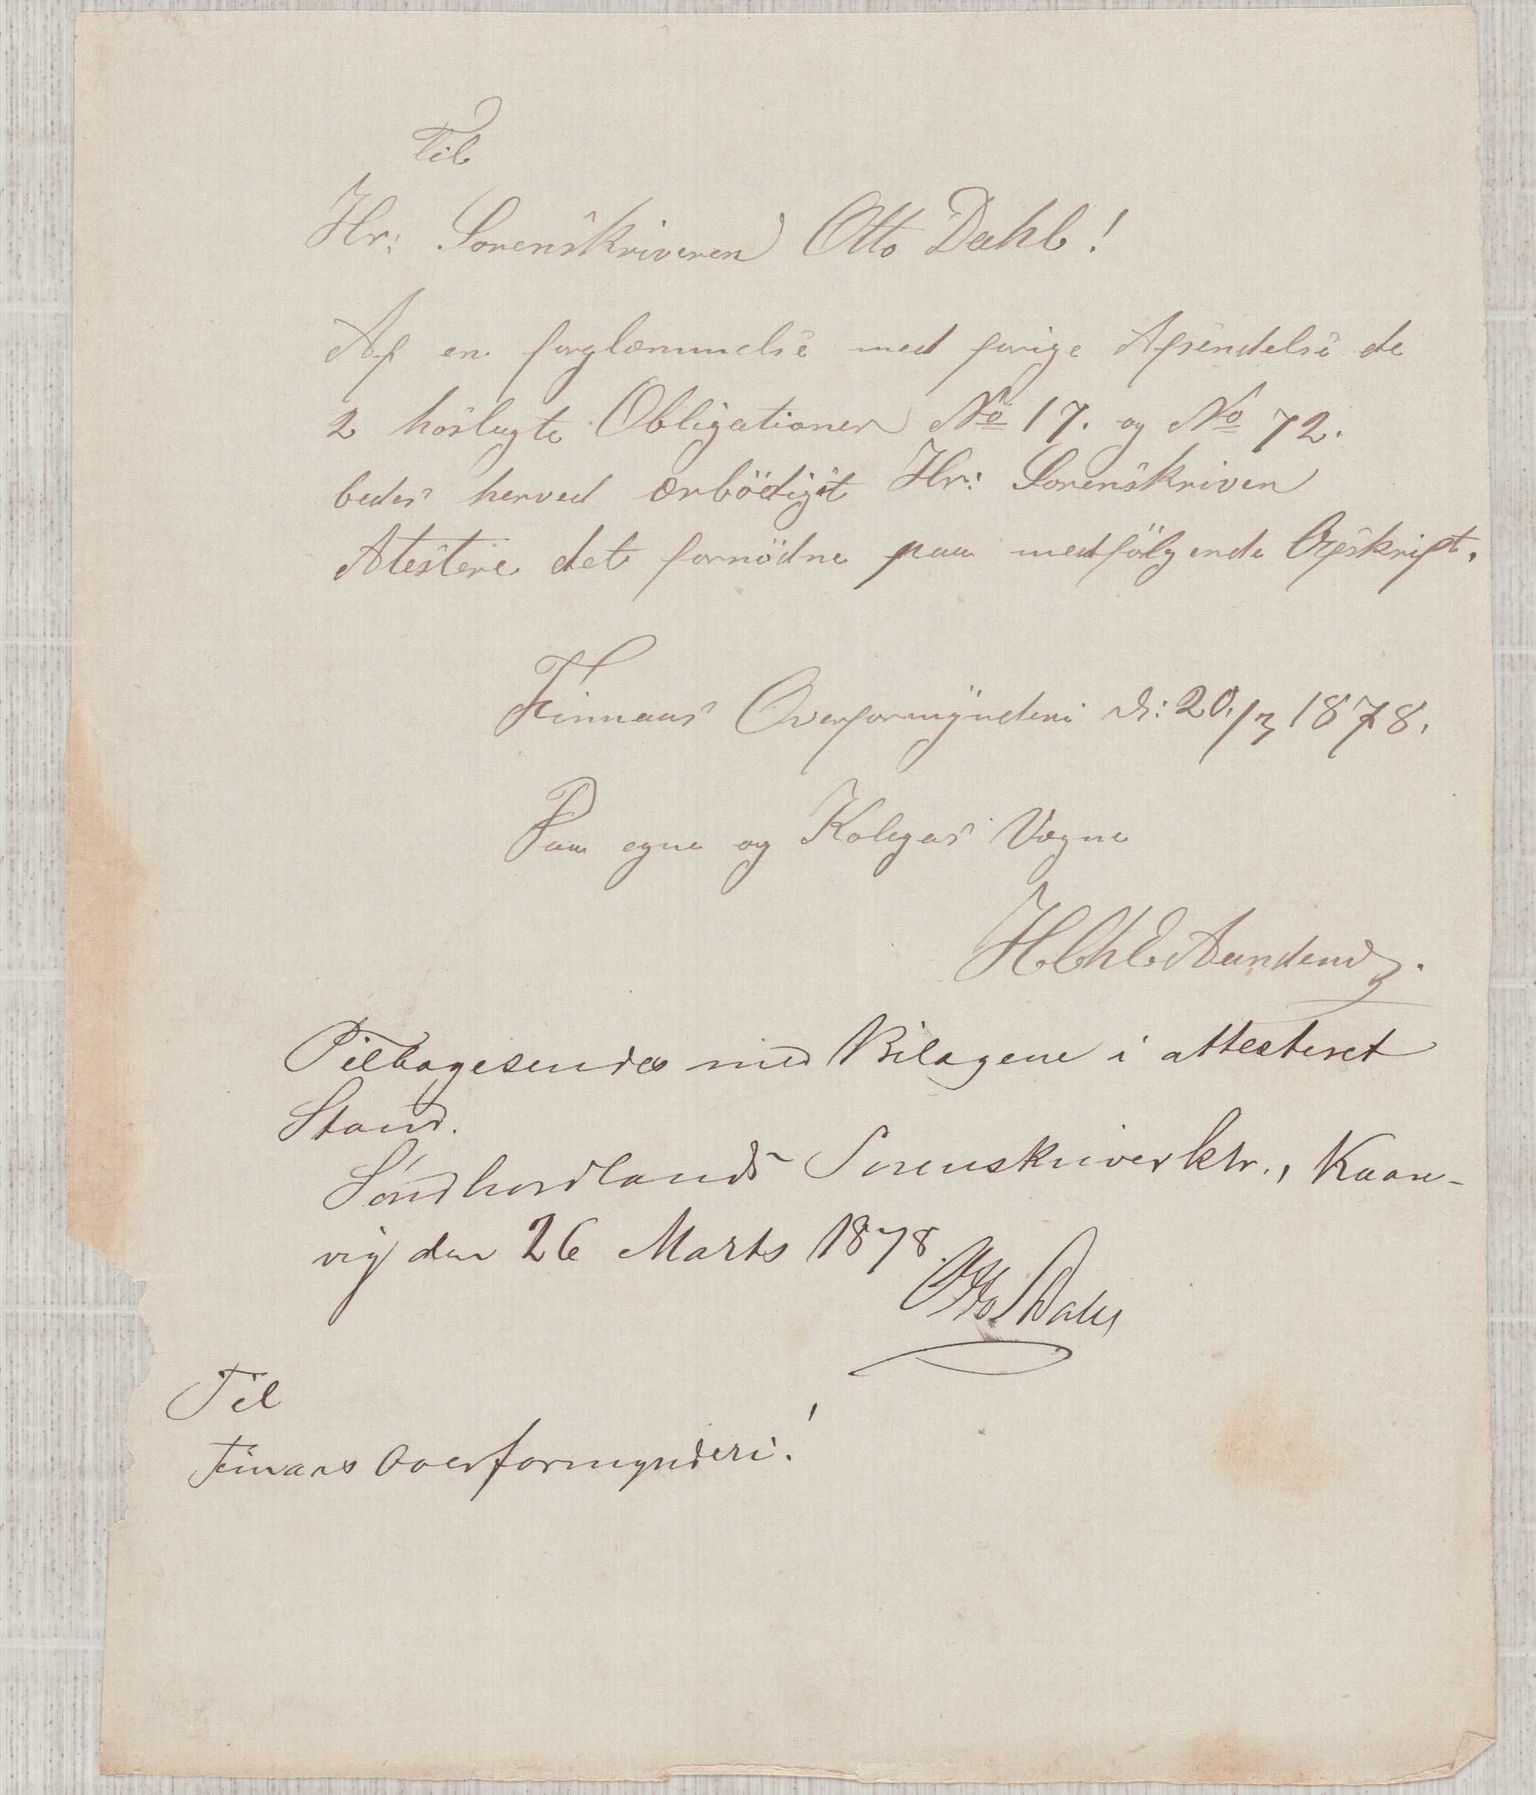 Til
Hr: Sorenskriveren Otto Dahl!
Af en forglemmelse med forige Afsendelse de
2 hoslagte Obligationer No 17. og No 72.
bedes herved ærbödigst Hr: Sorenskriven
Atestere det fornödne paa medfölgende Opskrift.
Finnaas Overformÿnderi d: 20/3 1878.
Paa egne og Kolegas Vegne
Tilbagesendes med Bilagene i attesteret
Stand.
Söndhordlands Sorenskriverktr., Kaar-
vig den 26 Marts 1878.
Otto Dahl
Til
Finaas Overformynderi!